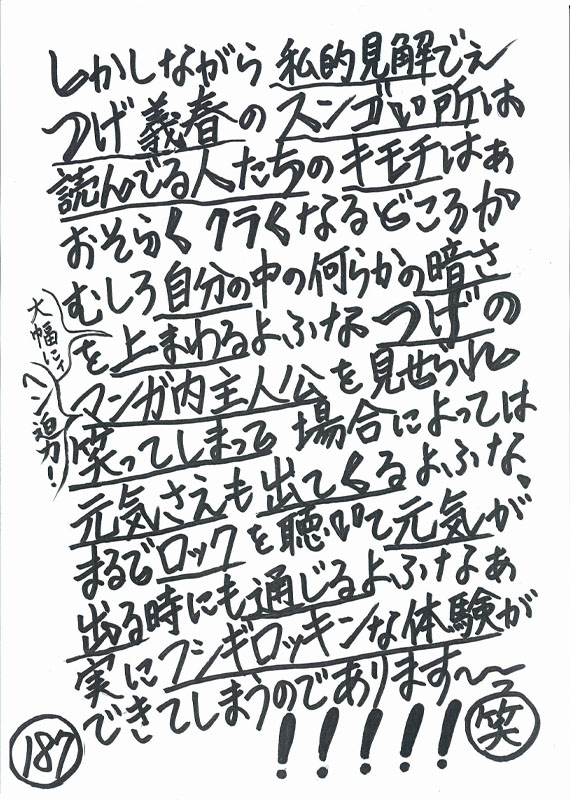 しかしながら 私的見解でえ
つげ義春の スンゴい所は
読んでる人たちのキモチはぁ
おそらく クラくなるどころか
むしろ自分の中の何らかの暗さ
を上まわるよふな つげの
大幅にィ
ヘン迫力!
マンガ内主人公を見せられ
笑ってしまって 場合によっては
元気さえも出てくるよふな、
まるでロックを聴いて元気が
出る時にも通じるよふなぁ
実にフシギロッキンな体験が
できてしまうのであります〜〜
!!!!! 笑
187